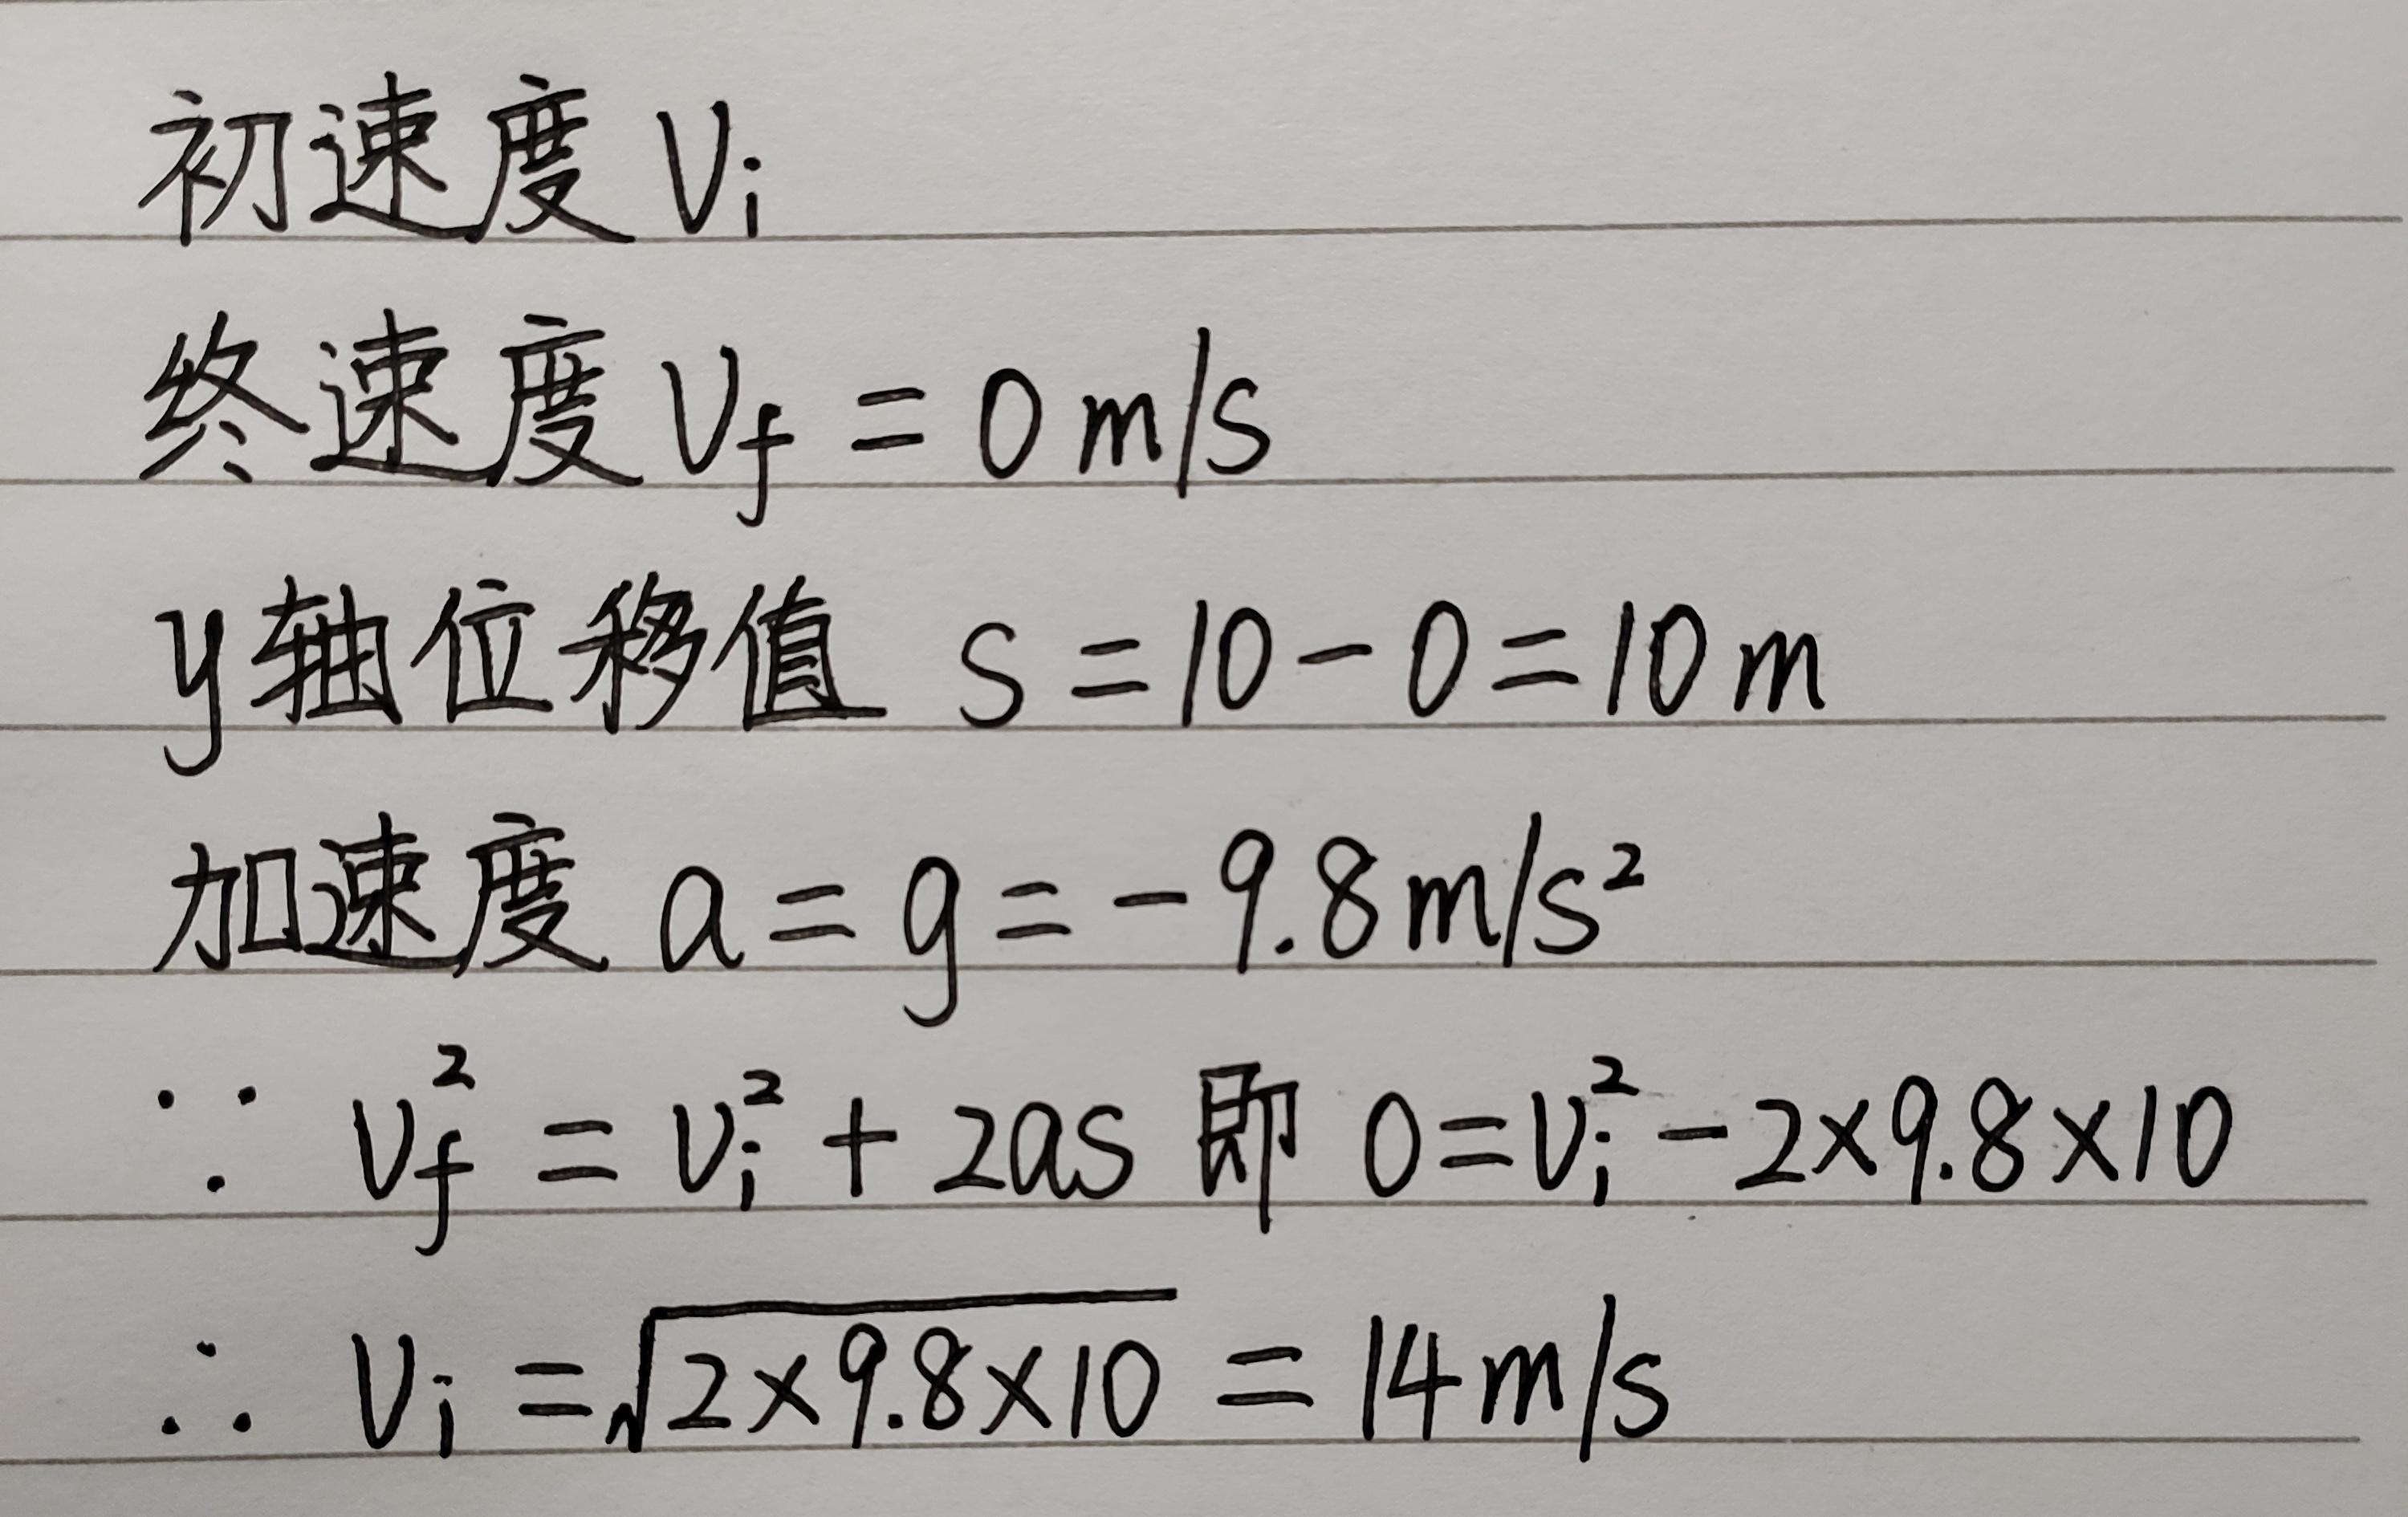 初速度 Vi
终速度 Vf = 0 m/s
y轴位移值 s = 10 - 0 = 10 m
加速度 a = g = -9.8 m/s²
∵ Vf² = Vi² + 2as 即 0 = Vi² - 2×9.8×10
∴ Vi = √2×9.8×10 = 14 m/s